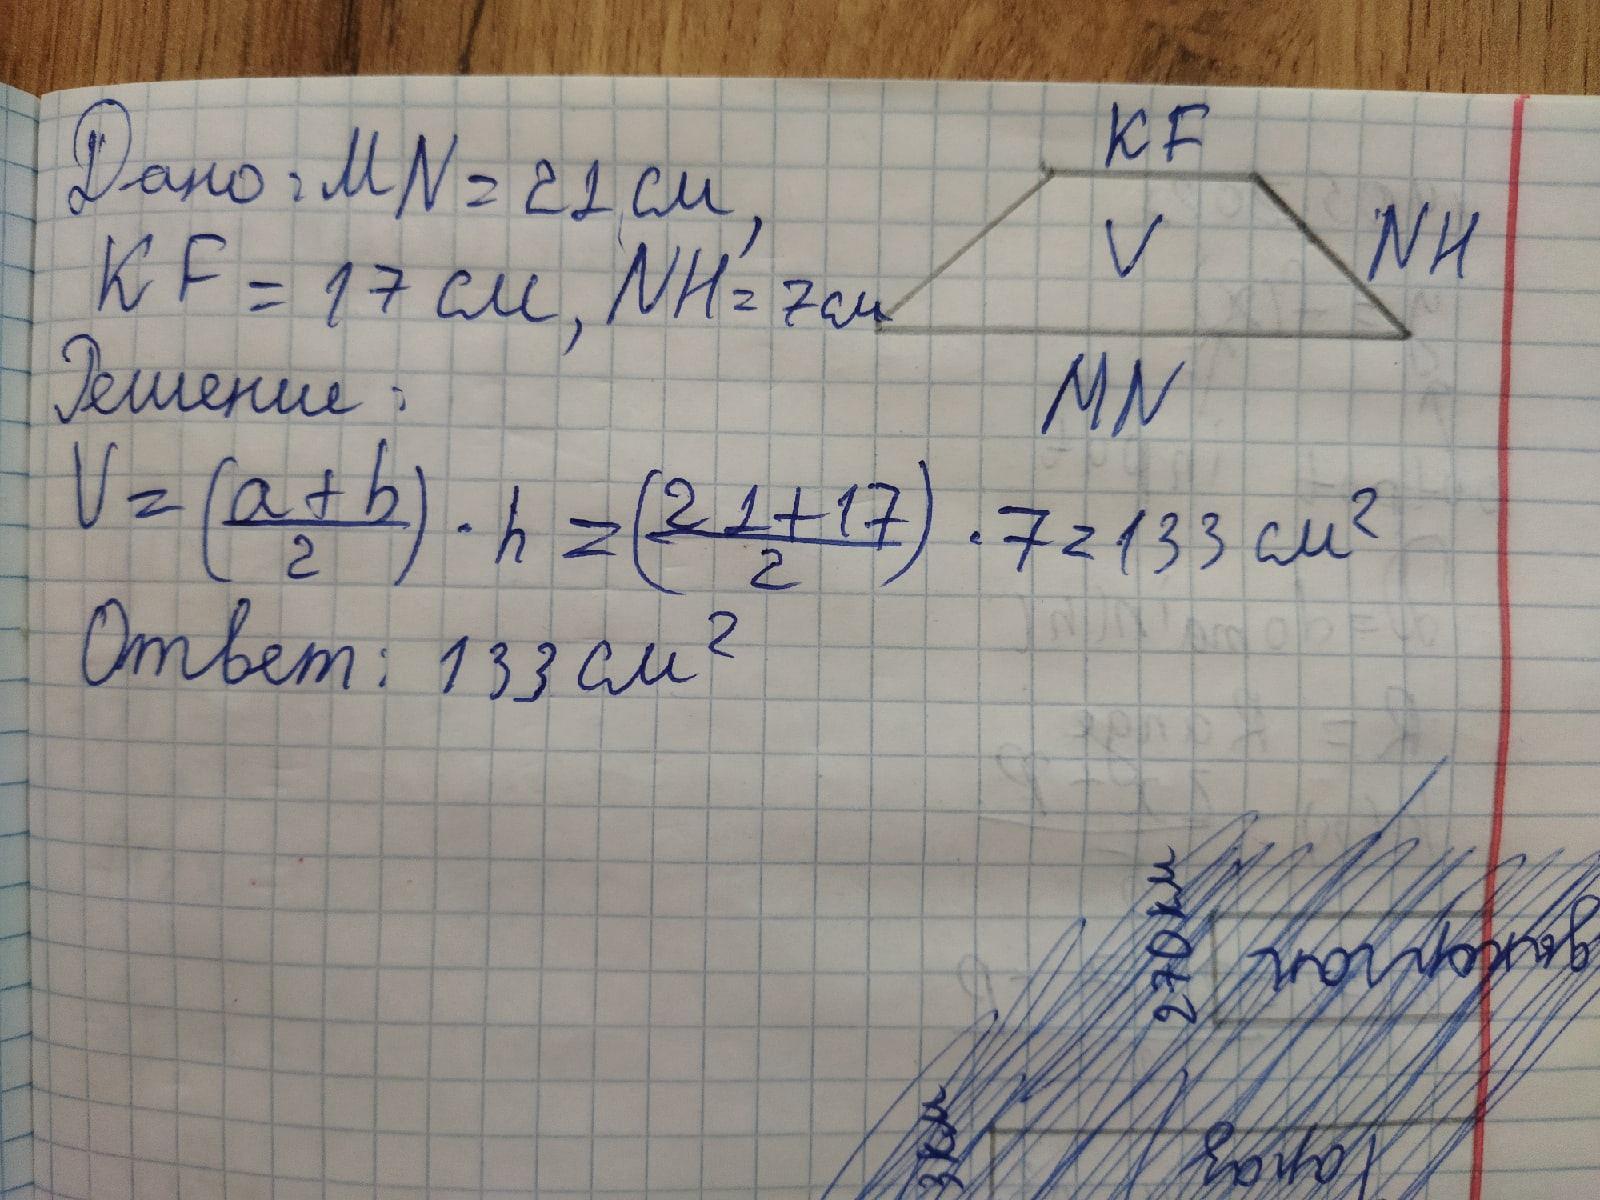 Дано: MN = 21 см,
KF = 17 см, NH = 7см
KF
V
NH
MN
Решение:
V = (a+b/2) · h = (21+17/2) · 7 = 133 см²
Ответ: 133 см²
270 км
3 км
Тараз